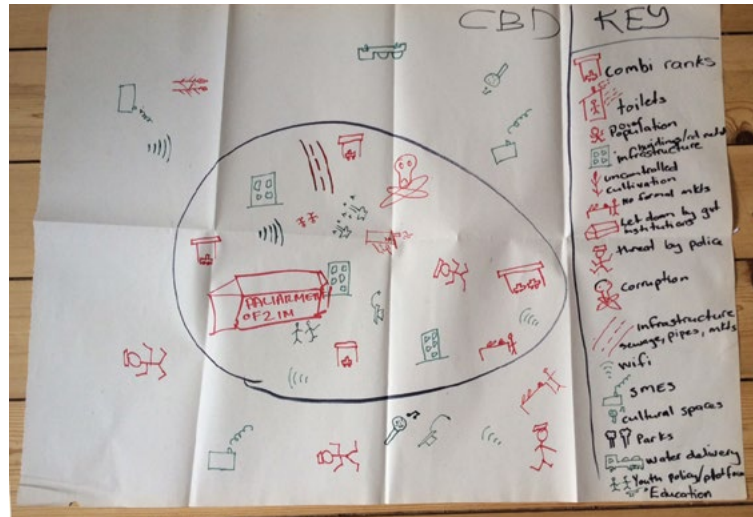 CBD
KEY
combi ranks
toilets
poor
Population
buildings/
infrastructure
uncontrolled
cultivation
No formal mkts
Let down by gvt
institutions
threat by police
corruption
infrastructure
sewage, pipes, mkts
wifi
SMES
cultural spaces
Parks
water delivery
Youth policy/platform
Education
PALIARMENT
OF ZIM